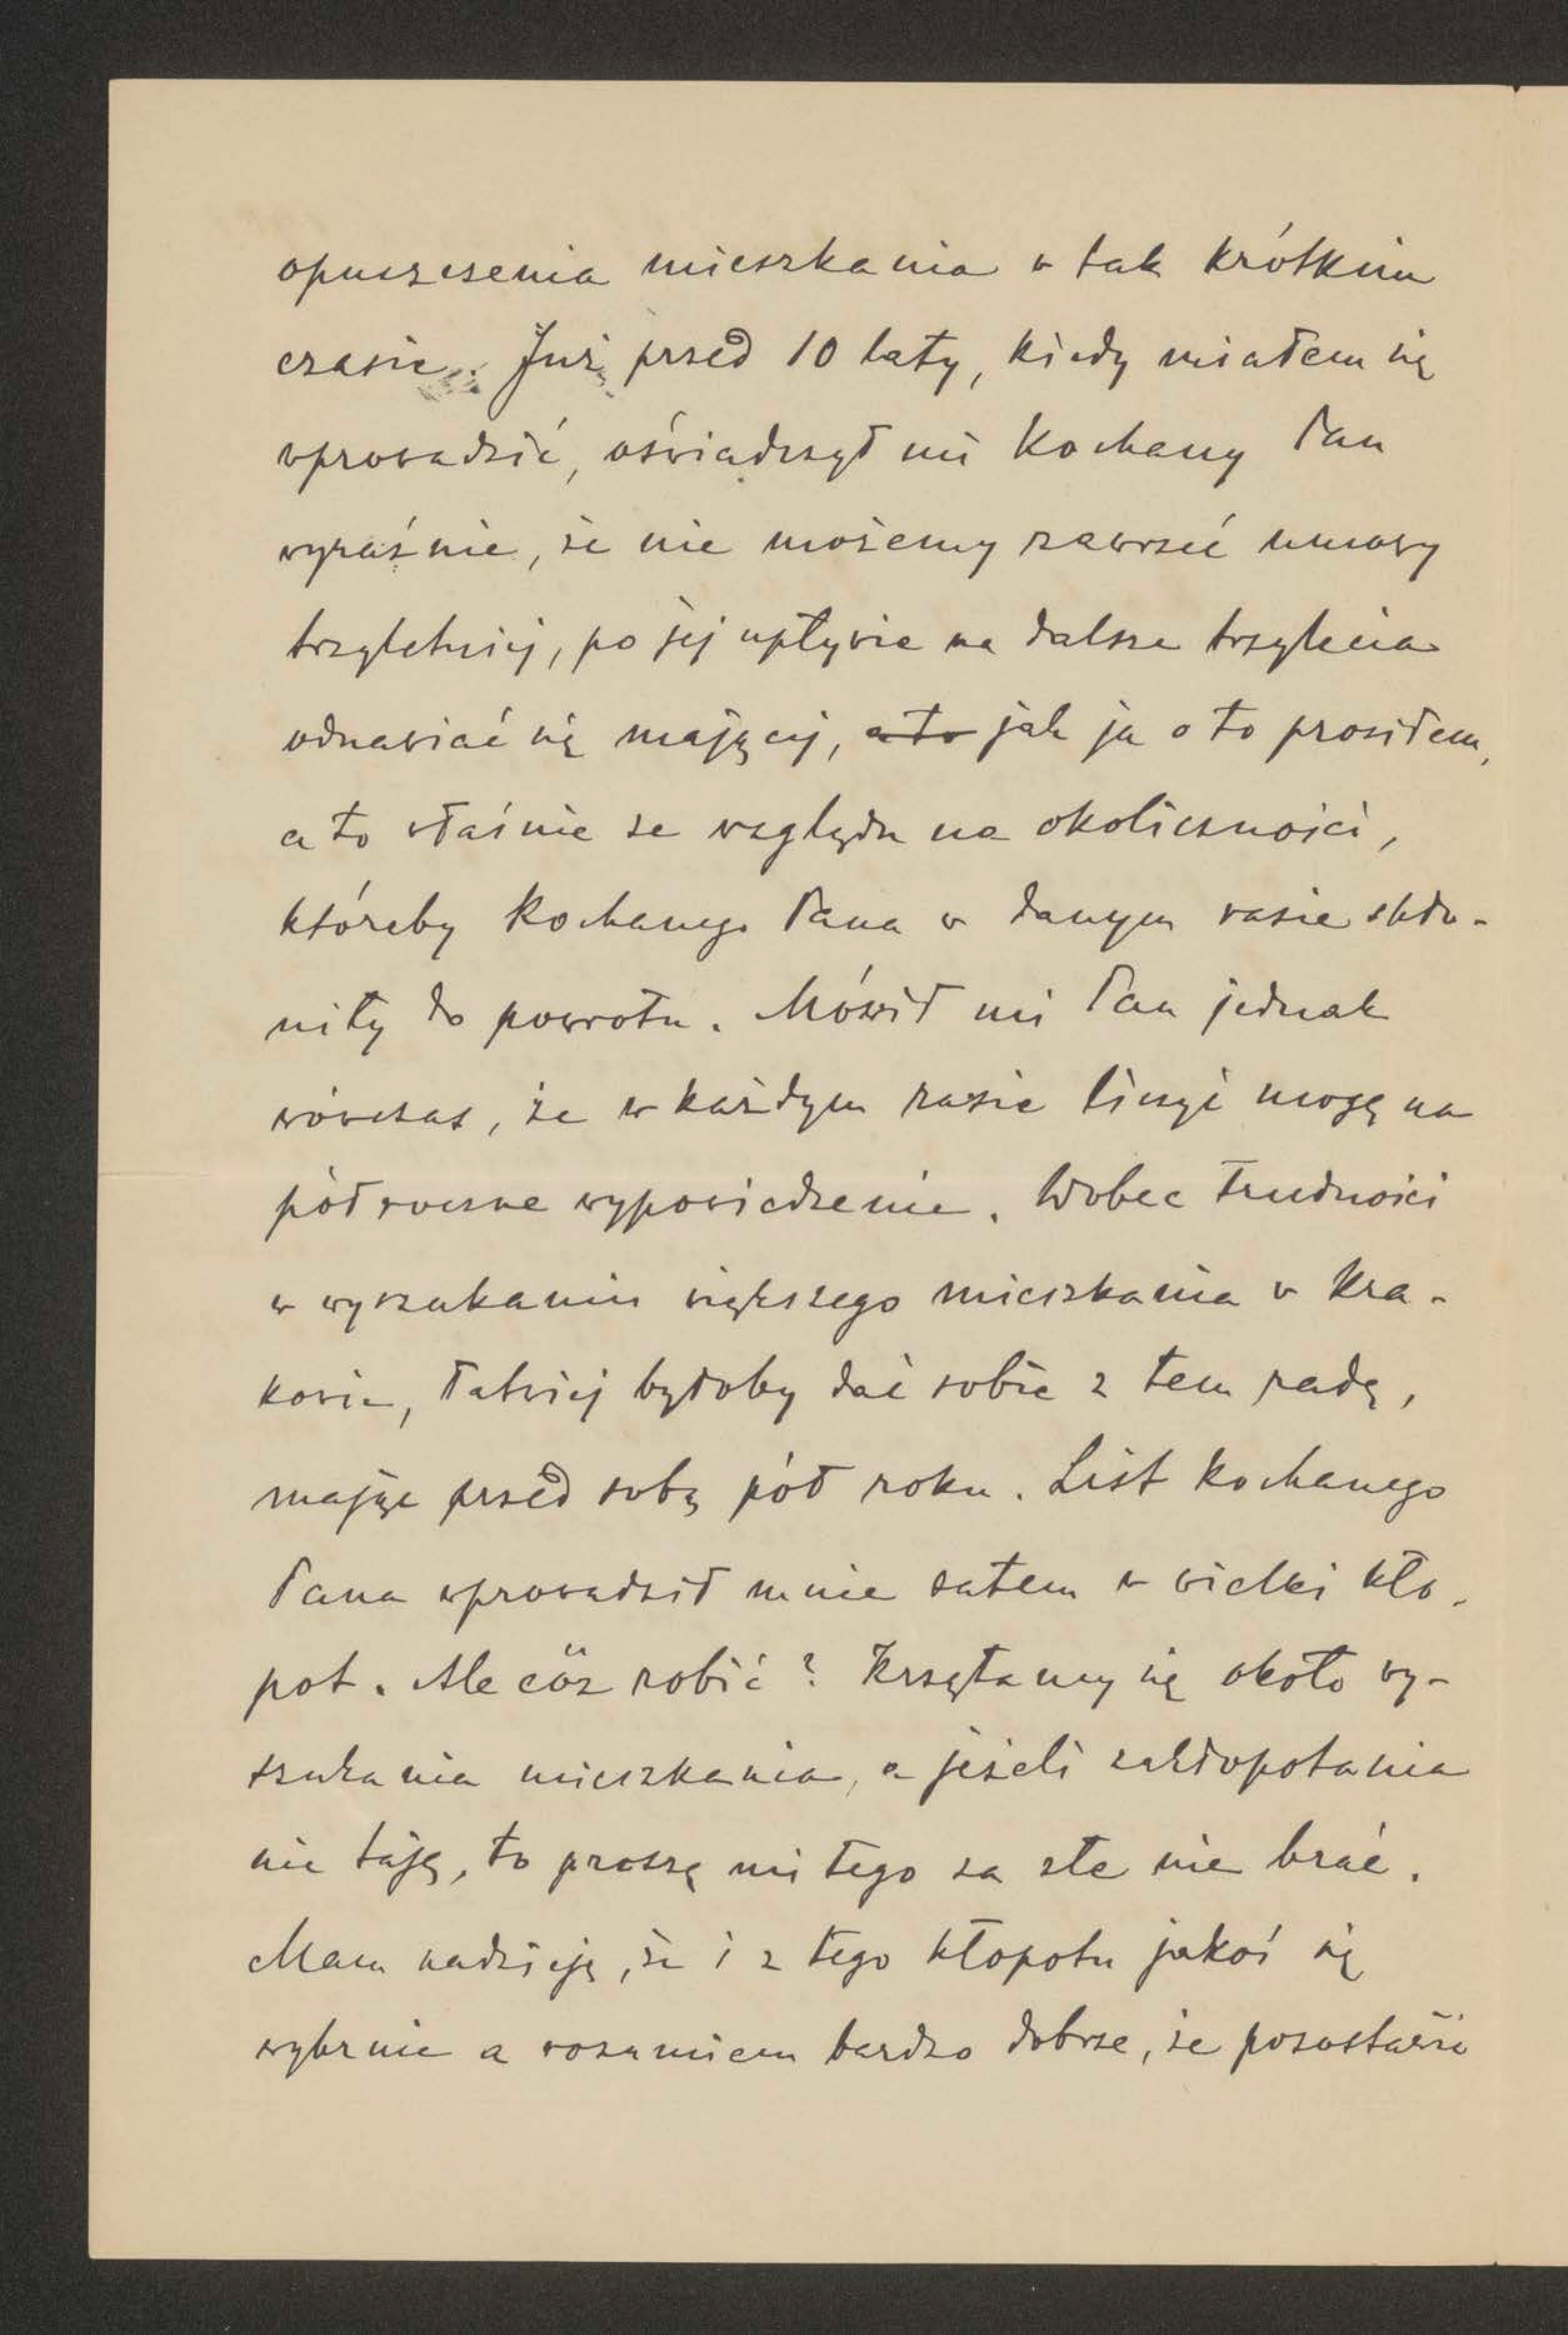 opuszczenia mieszkania w tak krótkim
czasie. Już przed 10 laty, kiedy miałem się
wprowadzić, oświadczył mi Kochany Pan
wyraźnie, że nie możemy zawrzeć umowy
trzyletniej, po jej upływie na dalsze trzylecia
odnawiać się mającej, a to jak ja o to prosiłem,
a to właśnie ze względu na okoliczności,
któreby Kochanego Pana w danym razie skło-
niły do powrotu. Mówił mi Pan jednak
wówczas, że w każdym razie liczyć mogę na
półroczne wypowiedzenie. Wobec trudności
w wyszukaniu większego mieszkania w Kra-
kowie, łatwiej byłoby dać sobie z tem radę,
mając przed sobą pół roku. List Kochanego
Pana wprowadził mnie zatem w wielki kło-
pot. Ale cóż robić? Krzątamy się około wy-
szukania mieszkania, a jeżeli zakłopotania
nie taję, to proszę mi tego za złe nie brać.
Mam nadzieję, że i z tego kłopotu jakoś się
wybrnie a rozumiem bardzo dobrze, że pozostawić